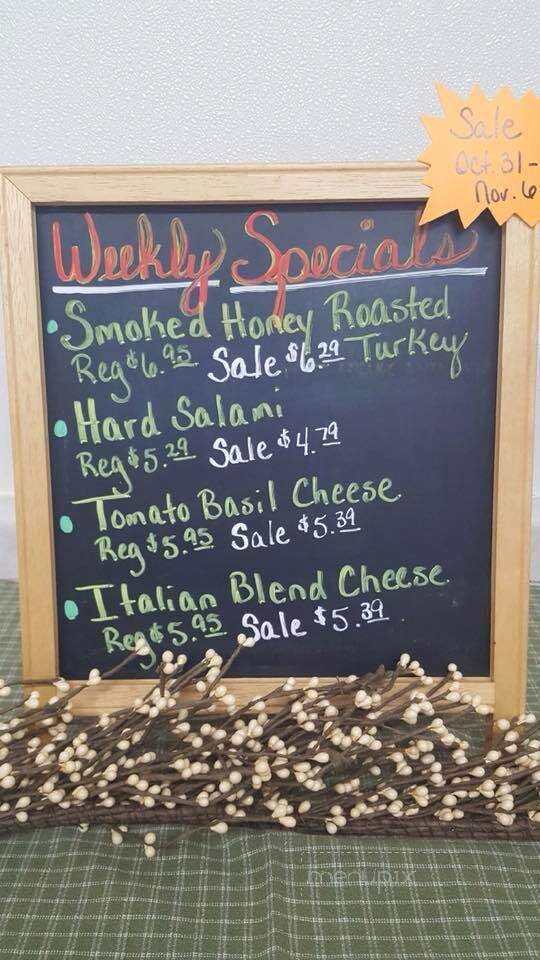 Sale
Oct. 31-
Nov. 6
Weekly Specials
Smoked Honey Roasted
Reg $6.95 Sale $6.29 Turkey
Hard Salami
Reg $5.29 Sale $4.79
Tomato Basil Cheese
Reg $5.95 Sale $5.39
Italian Blend Cheese
Reg $5.95 Sale $5.39
menupix